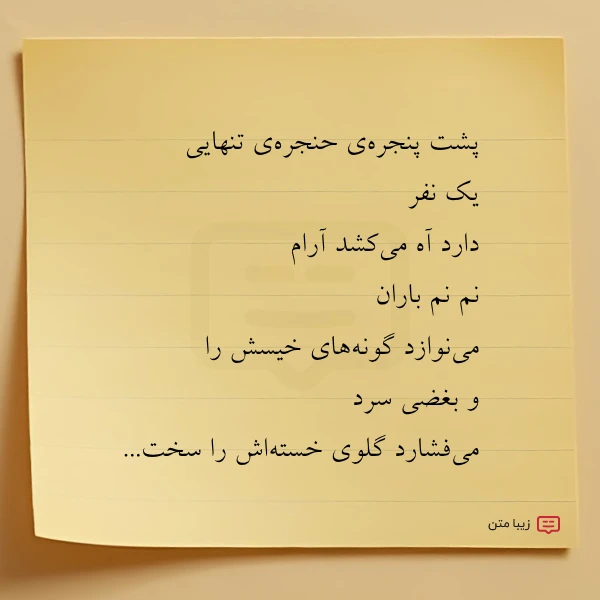 پشت پنجره‌ی حنجره‌ی تنهایی
یک نفر
دارد آه می‌کشد آرام
نم نم باران
می‌نوازد گونه‌های خیسش را
و بغضی سرد
می‌فشارد گلوی خسته‌اش را سخت...
زیبا متن